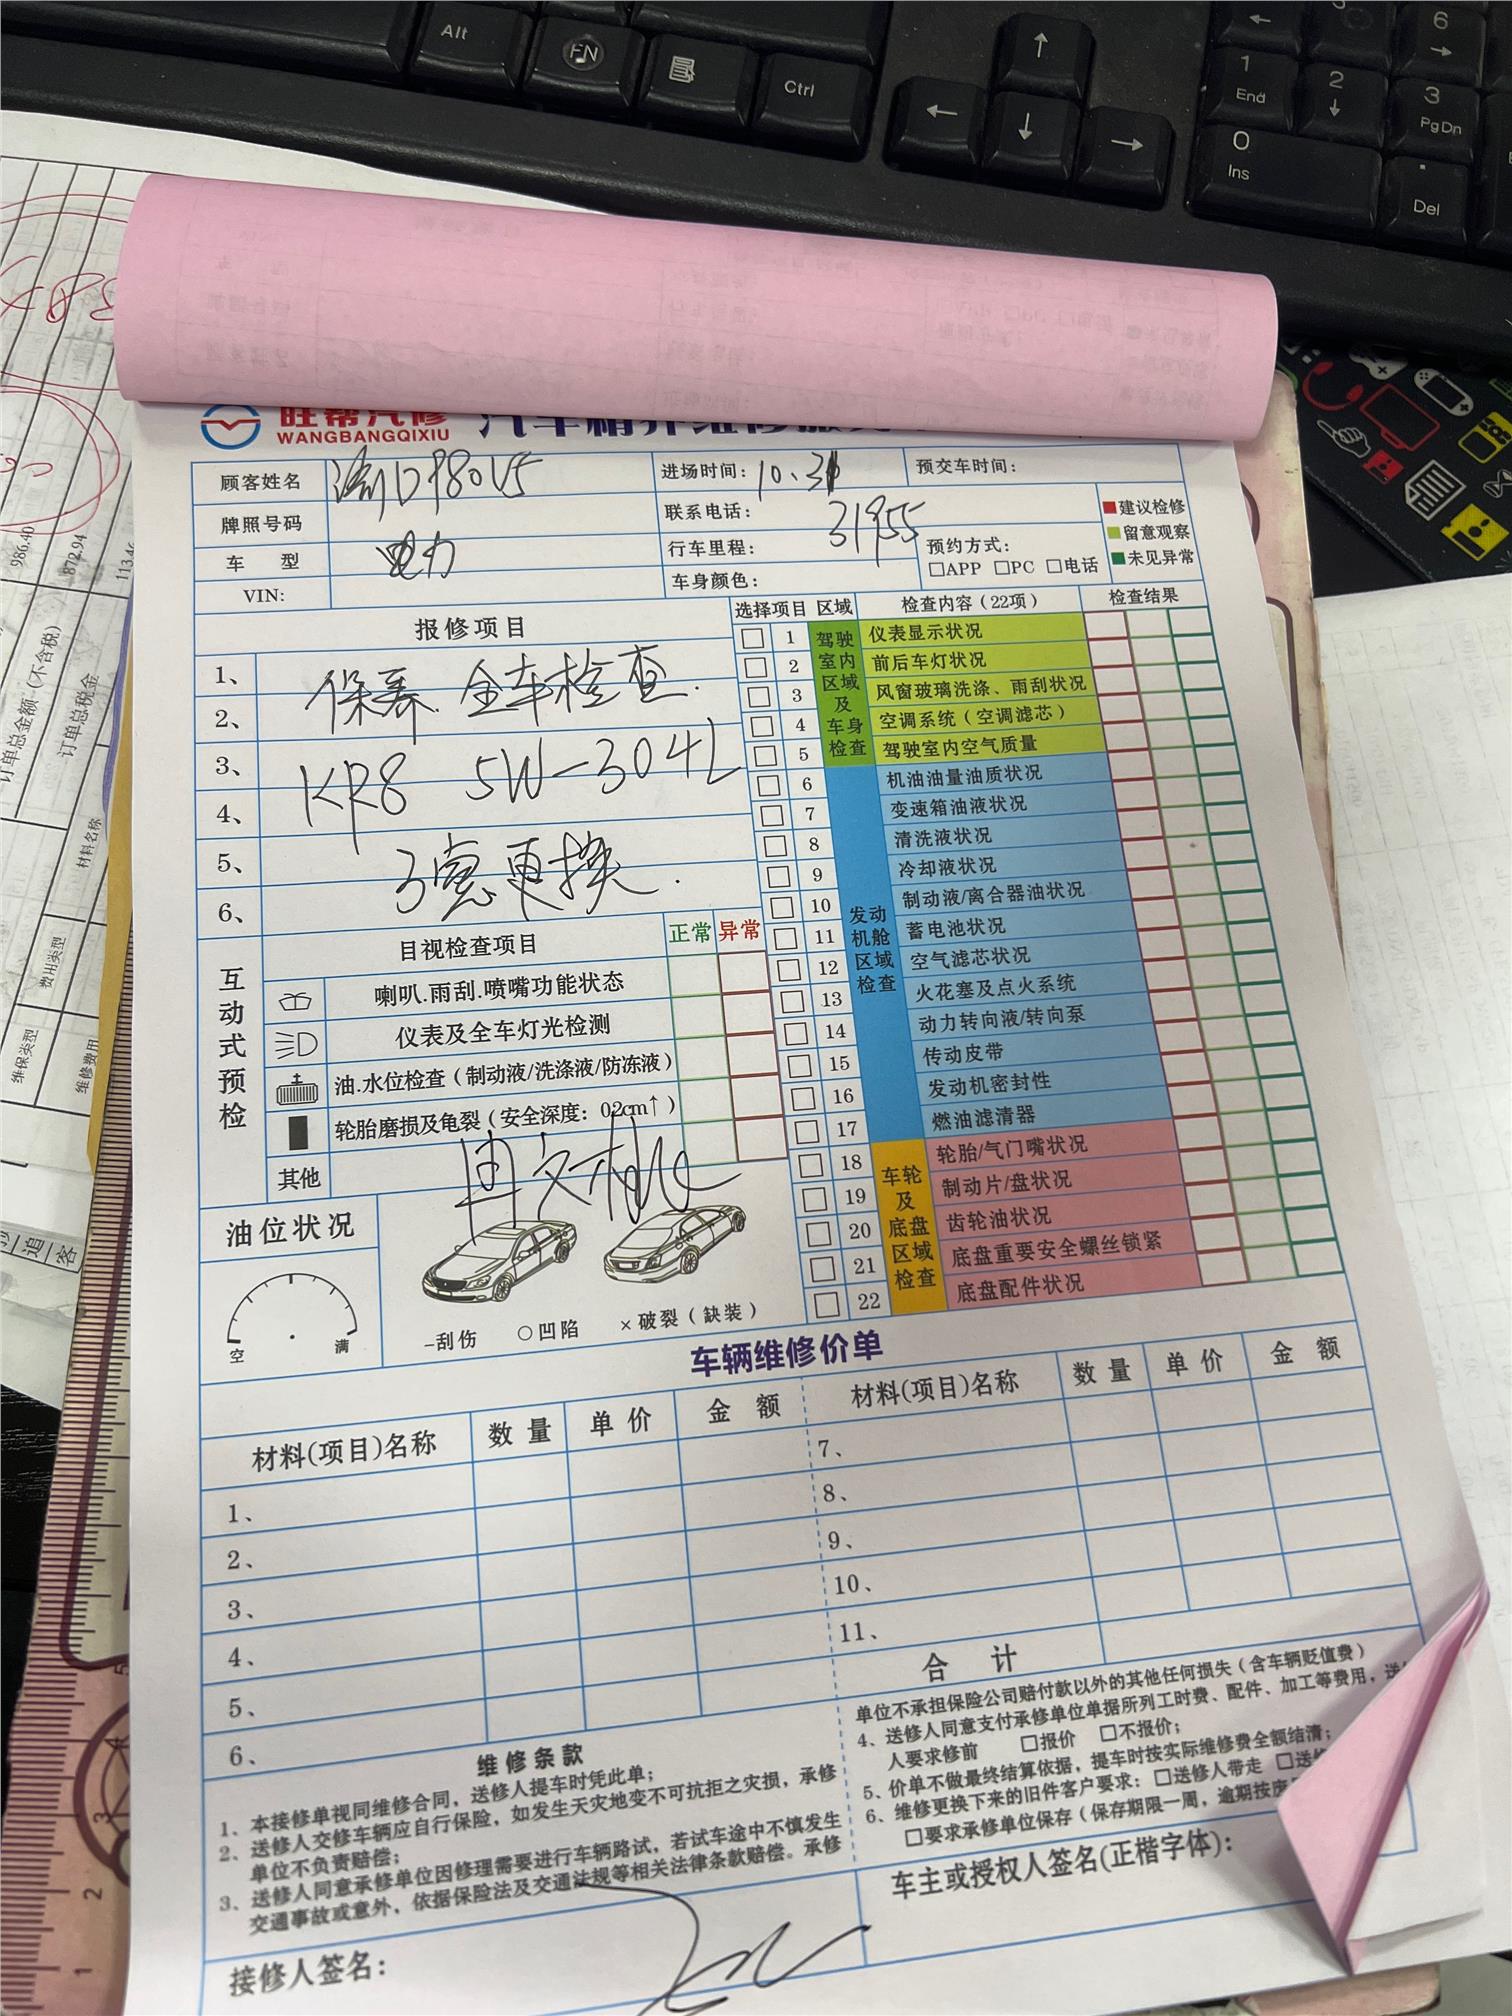 Alt
FN
Ctrl
6
1 End
2
3 PgDn
0 Ins
Del
旺帮汽修
WANGBANGQIXIU
汽车精养维修服务
顾客姓名
渝D980U5
进场时间:
10.31
预交车时间:
牌照号码
联系电话:
车 型
电力
行车里程:
31955
预约方式:
□APP □PC □电话
VIN:
车身颜色:
建议检修
留意观察
未见异常
报修项目
1、
2、
3、
4、
5、
6、
保养.全车检查.
KR8 5W-30 4L
3滤更换.
选择项目 区域 检查内容(22项) 检查结果
驾驶室内区域及车身检查
1 仪表显示状况
2 前后车灯状况
3 风窗玻璃洗涤、雨刮状况
4 空调系统(空调滤芯)
5 驾驶室内空气质量
发动机舱区域检查
6 机油油量油质状况
7 变速箱油液状况
8 清洗液状况
9 冷却液状况
10 制动液/离合器油状况
11 蓄电池状况
12 空气滤芯状况
13 火花塞及点火系统
14 动力转向液/转向泵
15 传动皮带
16 发动机密封性
17 燃油滤清器
车轮及底盘区域检查
18 轮胎/气门嘴状况
19 制动片/盘状况
20 齿轮油状况
21 底盘重要安全螺丝锁紧
22 底盘配件状况
互动式预检
目视检查项目 正常 异常
喇叭.雨刮.喷嘴功能状态
仪表及全车灯光检测
油.水位检查(制动液/洗涤液/防冻液)
轮胎磨损及龟裂(安全深度: 02cm↑)
其他
油位状况
空
满
-刮伤 ○凹陷 ×破裂(缺装)
车辆维修价单
材料(项目)名称 数量 单价 金额
材料(项目)名称 数量 单价 金额
1、
2、
3、
4、
5、
6、
7、
8、
9、
10、
11、
合计
维修条款
1、本接修单视同维修合同，送修人提车时凭此单;
2、送修人交修车辆应自行保险，如发生天灾地变不可抗拒之灾损，承修
单位不负责赔偿;
3、送修人同意承修单位因修理需要进行车辆路试，若试车途中不慎发生
交通事故或意外，依据保险法及交通法规等相关法律条款赔偿。承修
单位不承担保险公司赔付款以外的其他任何损失(含车辆贬值费)
4、送修人同意支付承修单位单据所列工时费、配件、加工等费用，送
人要求修前 □报价 □不报价;
5、价单不做最终结算依据，提车时按实际维修费全额结清;
6、维修更换下来的旧件客户要求: □送修人带走 □送
□要求承修单位保存(保存期限一周，逾期按废
接修人签名:
车主或授权人签名(正楷字体):
订单总金额(不含税)
986.40
订单总税金
872.94
材料名称
费用类型
维保类型
维修费用
追
客